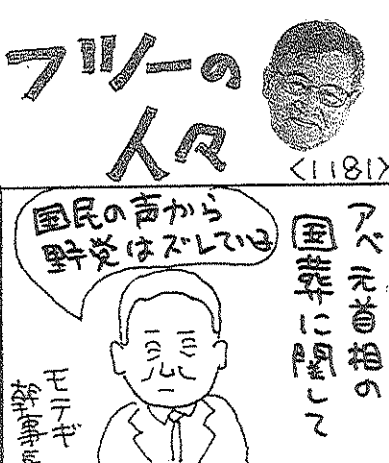 フツーの
人々
<1181>
アベ元首相の
国葬に関して
国民の声から
野党はズレている
モテギ
幹事長